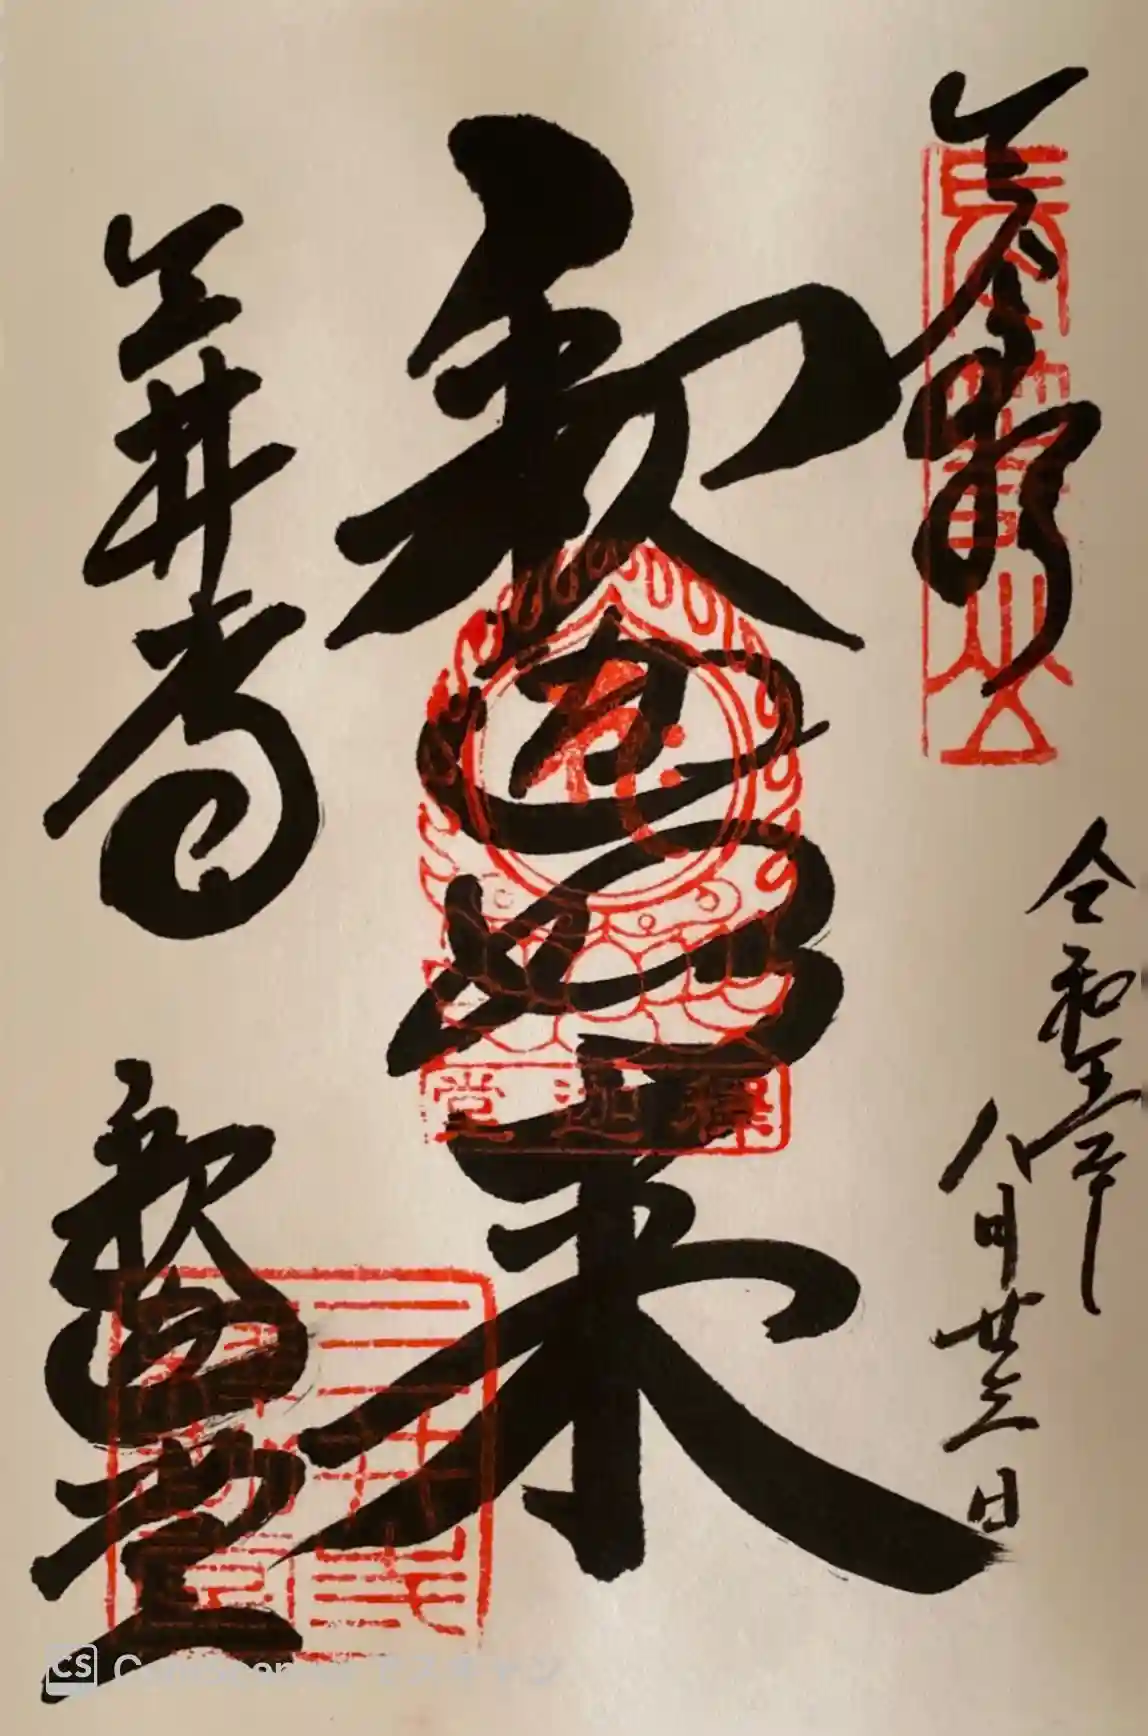 長等山
令和五年
八月廿三日
釈迦如来
釋迦堂
三井寺
釈迦堂
CS CamScanner でスキャン